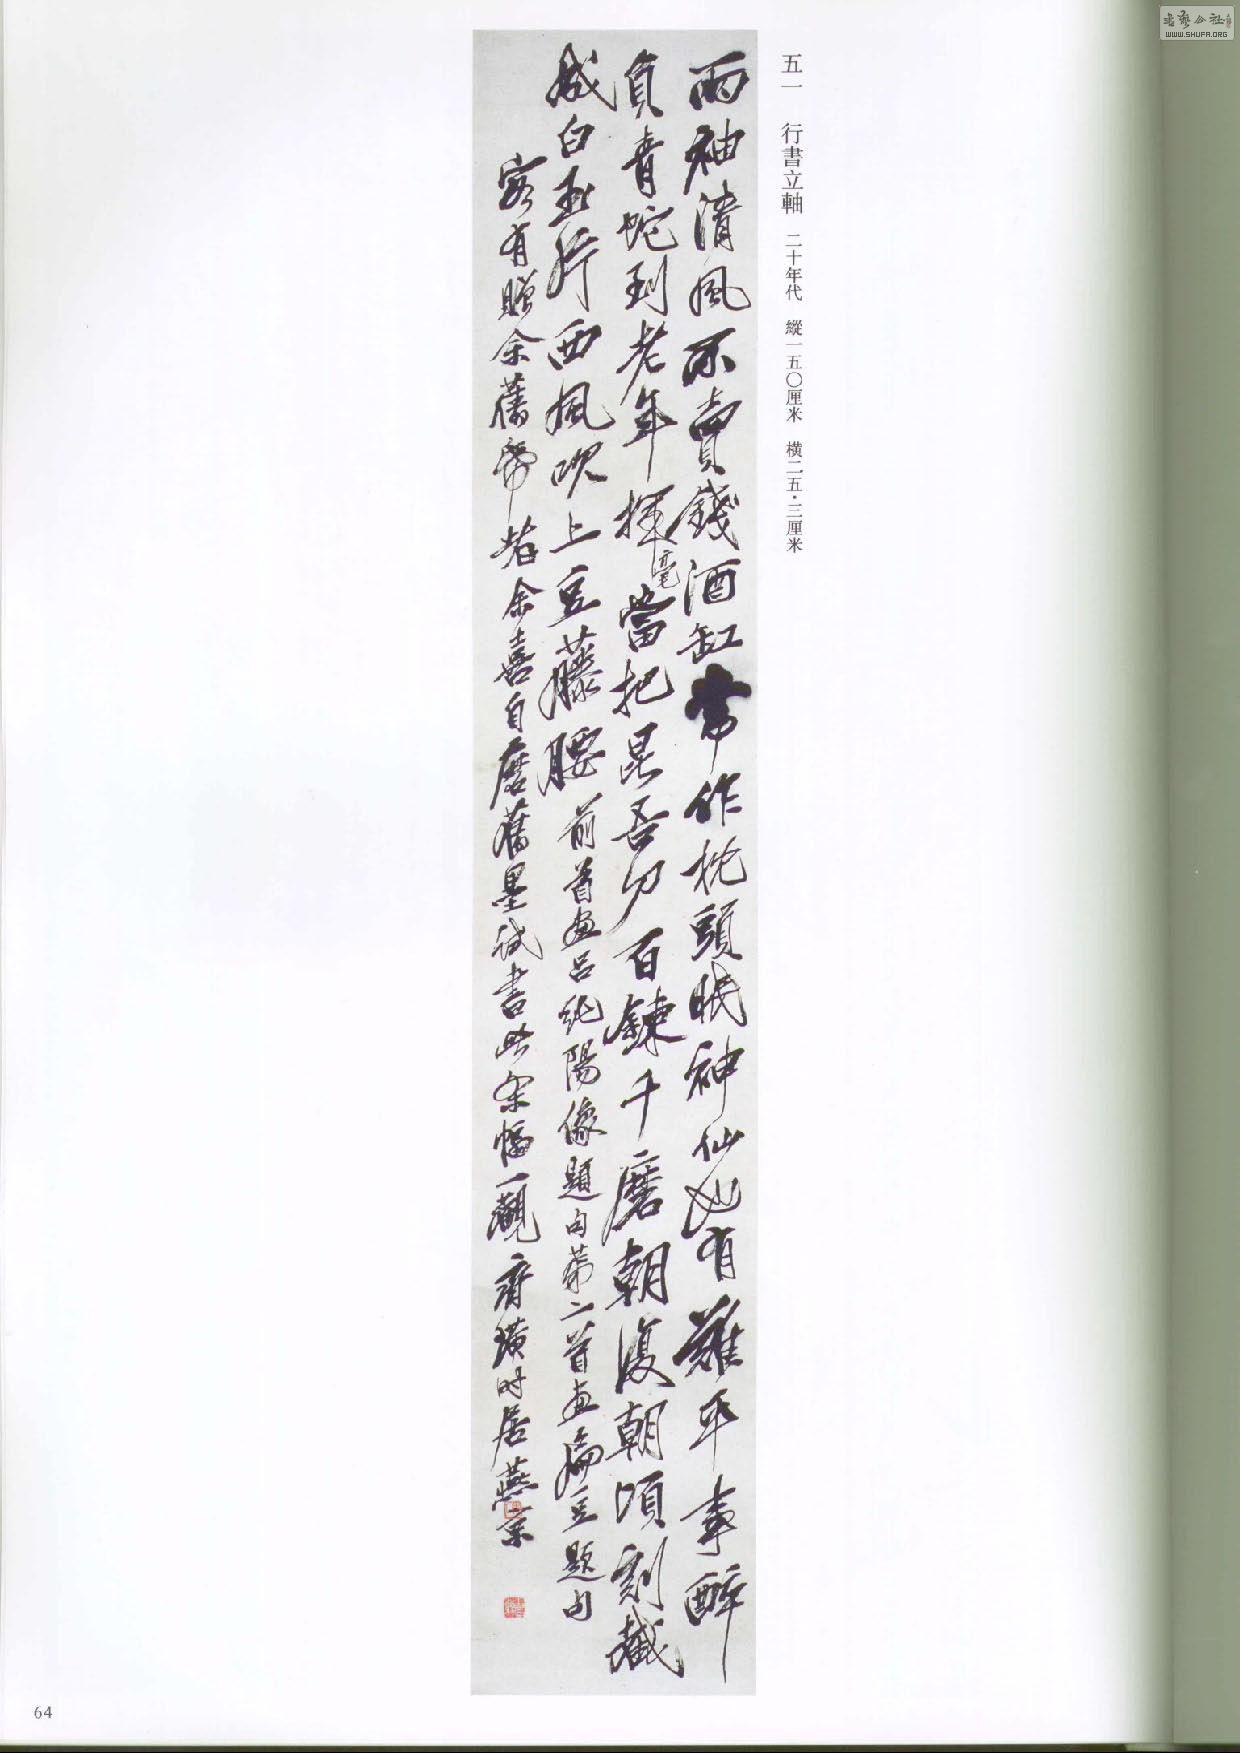 五一 行書立軸 二十年代 縱一五〇厘米 橫二五·三厘米
兩袖清風不賣錢酒缸常作枕頭眠神仙也有難平事醉
負青蛇到老年揮毫當把昆吾刀百鍊千磨朝復朝頃刻截
成白玉片西風吹上豆藤腰 前首畫呂純陽像題句第二首畫扁豆題句
客有贈余舊帋者余喜自磨舊墨試書此條幅一觀 齊璜時居燕京
64
WWW.SHUFA.ORG